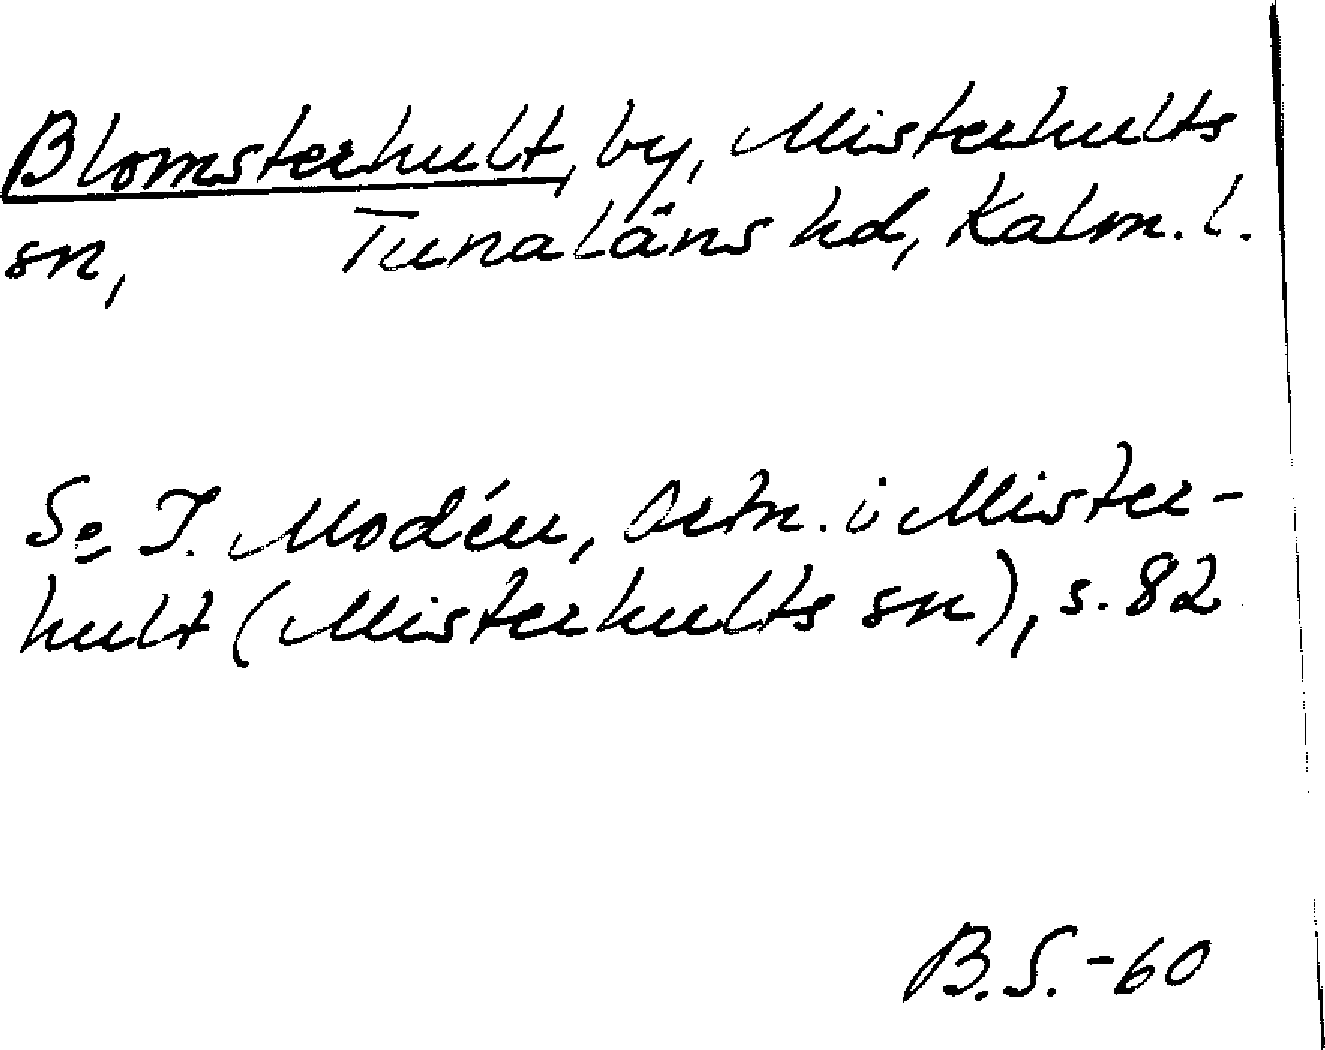 Blomsterhult, by, Misterhults
sn, Tunaläns hd, Kalm. l.
Se I. Modéer, Ortn. i Mister-
hult (Misterhults sn), s. 82
B.S.-60